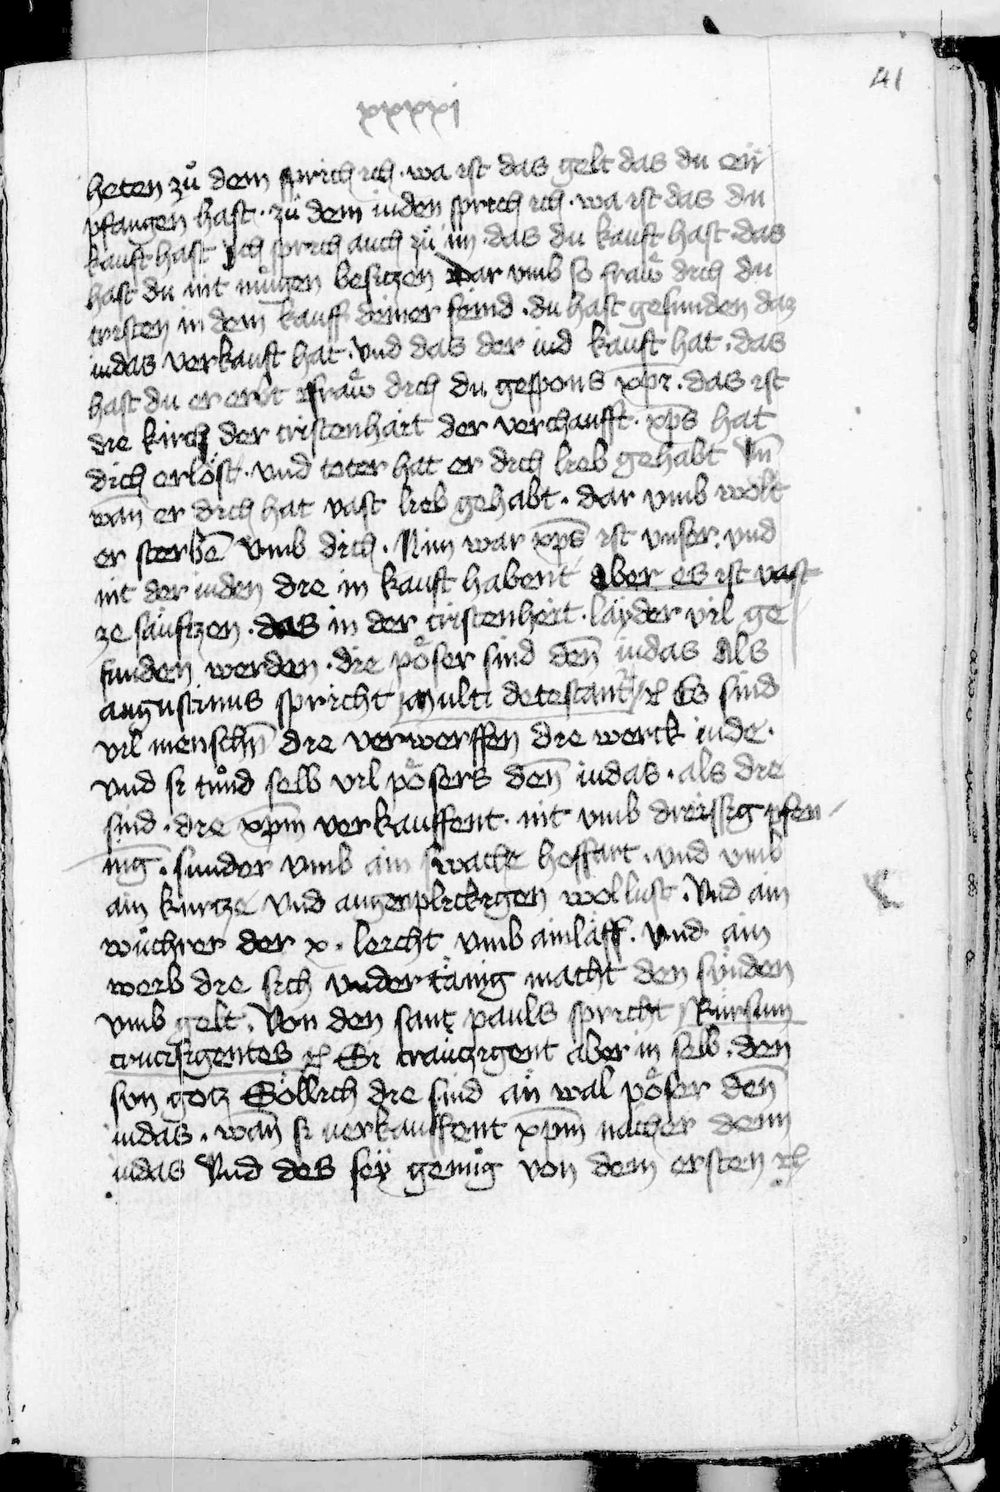 41
xxxxi
heten zů dem sprich ich · wa ist das gelt das du en
pfangen hast · zů dem iuden sprich ich · wa ist das du
kauft hast Ich sprich auch zů im · das du kauft hast · das
hast du nit mügen besiczen Dar vmb so fraẅ dich du
cristen in dem kauff deiner feind · du hast gefunden daz
iudas verkauft hat · vnd das der iud kauft hat · das
hast du er erbt fraẅ dich du gespons xpi · das ist
die kirch der cristenhait der verchaufft · xp̄s hat
dich erlöst · vnd toter hat er dich lieb gehabt Vn̄
wan̄ er dich hat vast lieb gehabt · dar vmb wolt
er sterbē vmb dich · Nim war xp̄s ist vnser · vnd
nit der iuden die in kauft habent Aber es ist vast
ze säuftzen · das in der cristenheit · läyder vil ge
funden werden · die pöser sind den̄ iudas Als
augustinus spricht Multi detestant͛ ⁊c̄ Es sind
vil menschn̄ die verwerffen die werck iude ·
vnd si tůnd selb vil pösers den̄ iudas · als die
sind · die xp̄m verkauffent · nit vmb dreissig pfen
nig · sunder vmb ain swache hoffart · vnd vmb
ain kurtze vnd augenplickigen wollust · Vnd ain
wůchrer der x · leicht vmb ainläff · Vnd ain
weib die sich vnder tänig macht den sünden
vmb gelt · Von den sant pauls spricht Rursum
crucifigentes ⁊c̄ Si craüczigent aber in selb · den
sun gotz Söllich die sind an wal pöser den̄
iudas · wan̄ si verkauffent xp̄m nächer denn
iudas Vnd des seÿ genůg von dem ersten ⁊c̄